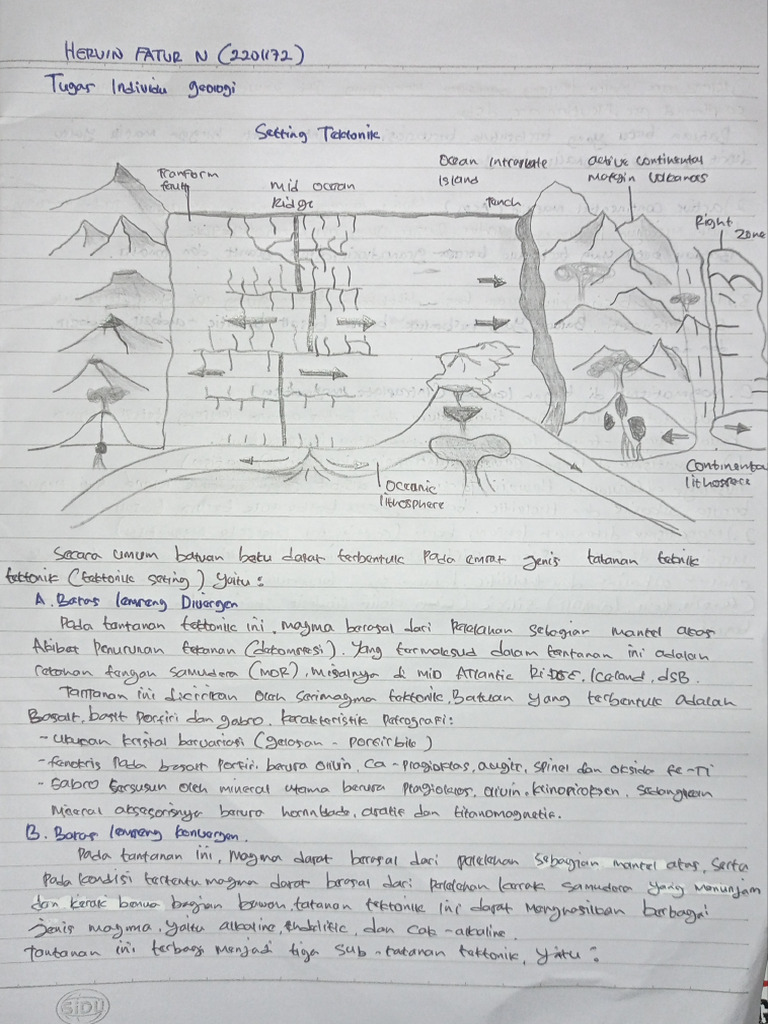 HERVIN FATUR N (2201172)
Tugas Individu geologi
Setting Tektonik
Transform
fault
mid ocean
Ridge
Ocean Intraplate
Island
Trench
active continental
Margin Volcanoes
Right
Zone
oceanic
lithosphere
Continental
lithosfere
Secara umum batuan beku dapat terbentuk pada empat jenis tatanan teknik
tektonik (tektonik seting) yaitu :
A. Batas lempeng Divergen
Pada tantanan tektonik ini, magma berasal dari pelelehan sebagian mantel atas
Akibat penurunan tekanan (dekompresi). Yang termaksud dalam tantanan ini adalah
retahan tangan samudera (MOR), misalnya di mid Atlantic Ridge, Iceland, dsb.
Tantanan ini dicirikan oleh serimagma toktonik, Batuan yang terbentuk adalah
Basalt, basalt porfiri dan gabro. Karakteristik Petrografi :
- Ukuran kristal bervariasi (gelasan - porfiritik)
- fenokris pada basalt porfiri berupa olivin, Ca - plagioklas, augit, spinel dan oksida Fe-Ti
- Gabro tersusun oleh mineral utama berupa plagioklas, olivin, klinopiroksen, sedangkan
Mineral aksesorisnya berupa hornblade, apatit dan titanomagnetit.
B. Batas lempeng konvergen.
Pada tantanan ini, magma dapat berasal dari pelelehan sebagian mantel atas, serta
pada kondisi tertentu magma dapat berasal dari pelelehan kerak samudera yang menunjam
dan kerak benua bagian bawah, tatanan tektonik ini dapat menghasilkan berbagai
jenis magma, yaitu alkaline, thoklitic, dan calc-alkaline.
Tantanan ini terbagi menjadi tiga sub-tatanan tektonik, yaitu :
SIDU